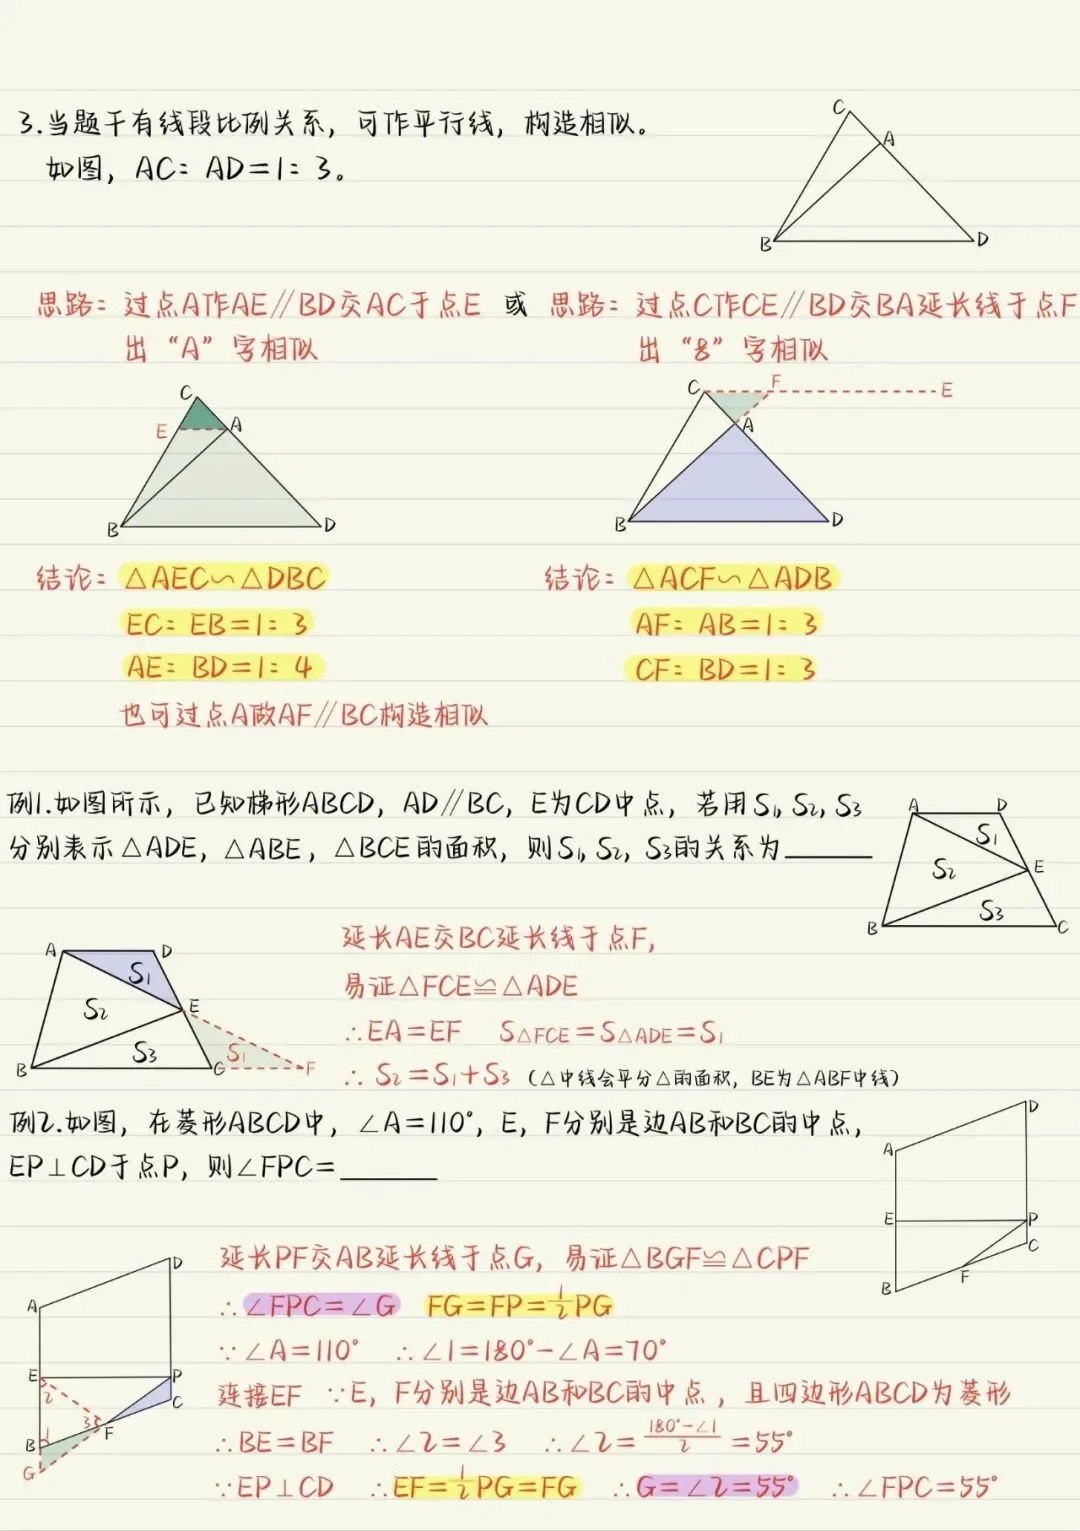 3.当题干有线段比例关系，可作平行线，构造相似。
如图，AC：AD=1：3。
C
A
B
D
思路：过点A作AE//BD交AC于点E 或 思路：过点C作CE//BD交BA延长线于点F
出“A”字相似
出“8”字相似
C
E
A
B
D
C
F
E
A
B
D
结论：△AEC∽△DBC
EC：EB=1：3
AE：BD=1：4
也可过点A做AF//BC构造相似
结论：△ACF∽△ADB
AF：AB=1：3
CF：BD=1：3
例1.如图所示，已知梯形ABCD，AD//BC，E为CD中点，若用S₁，S₂，S₃
分别表示△ADE，△ABE，△BCE的面积，则S₁，S₂，S₃的关系为
A
D
S₁
S₂
E
S₃
B
C
A
D
S₁
S₂
E
S₃
S₁
B
C
F
延长AE交BC延长线于点F，
易证△FCE≌△ADE
∴EA=EF S△FCE=S△ADE=S₁
∴S₂=S₁+S₃（△中线会平分△的面积，BE为△ABF中线）
例2.如图，在菱形ABCD中，∠A=110°，E，F分别是边AB和BC的中点，
EP⊥CD于点P，则∠FPC=
D
A
E
P
C
F
B
D
A
E
P
2
C
3
F
1
B
G
延长PF交AB延长线于点G，易证△BGF≌△CPF
∴∠FPC=∠G FG=FP=½PG
∵∠A=110° ∴∠1=180°-∠A=70°
连接EF ∵E，F分别是边AB和BC的中点，且四边形ABCD为菱形
∴BE=BF ∴∠2=∠3 ∴∠2=(180°-∠1)/2=55°
∵EP⊥CD ∴EF=½PG=FG ∴G=∠2=55° ∴∠FPC=55°